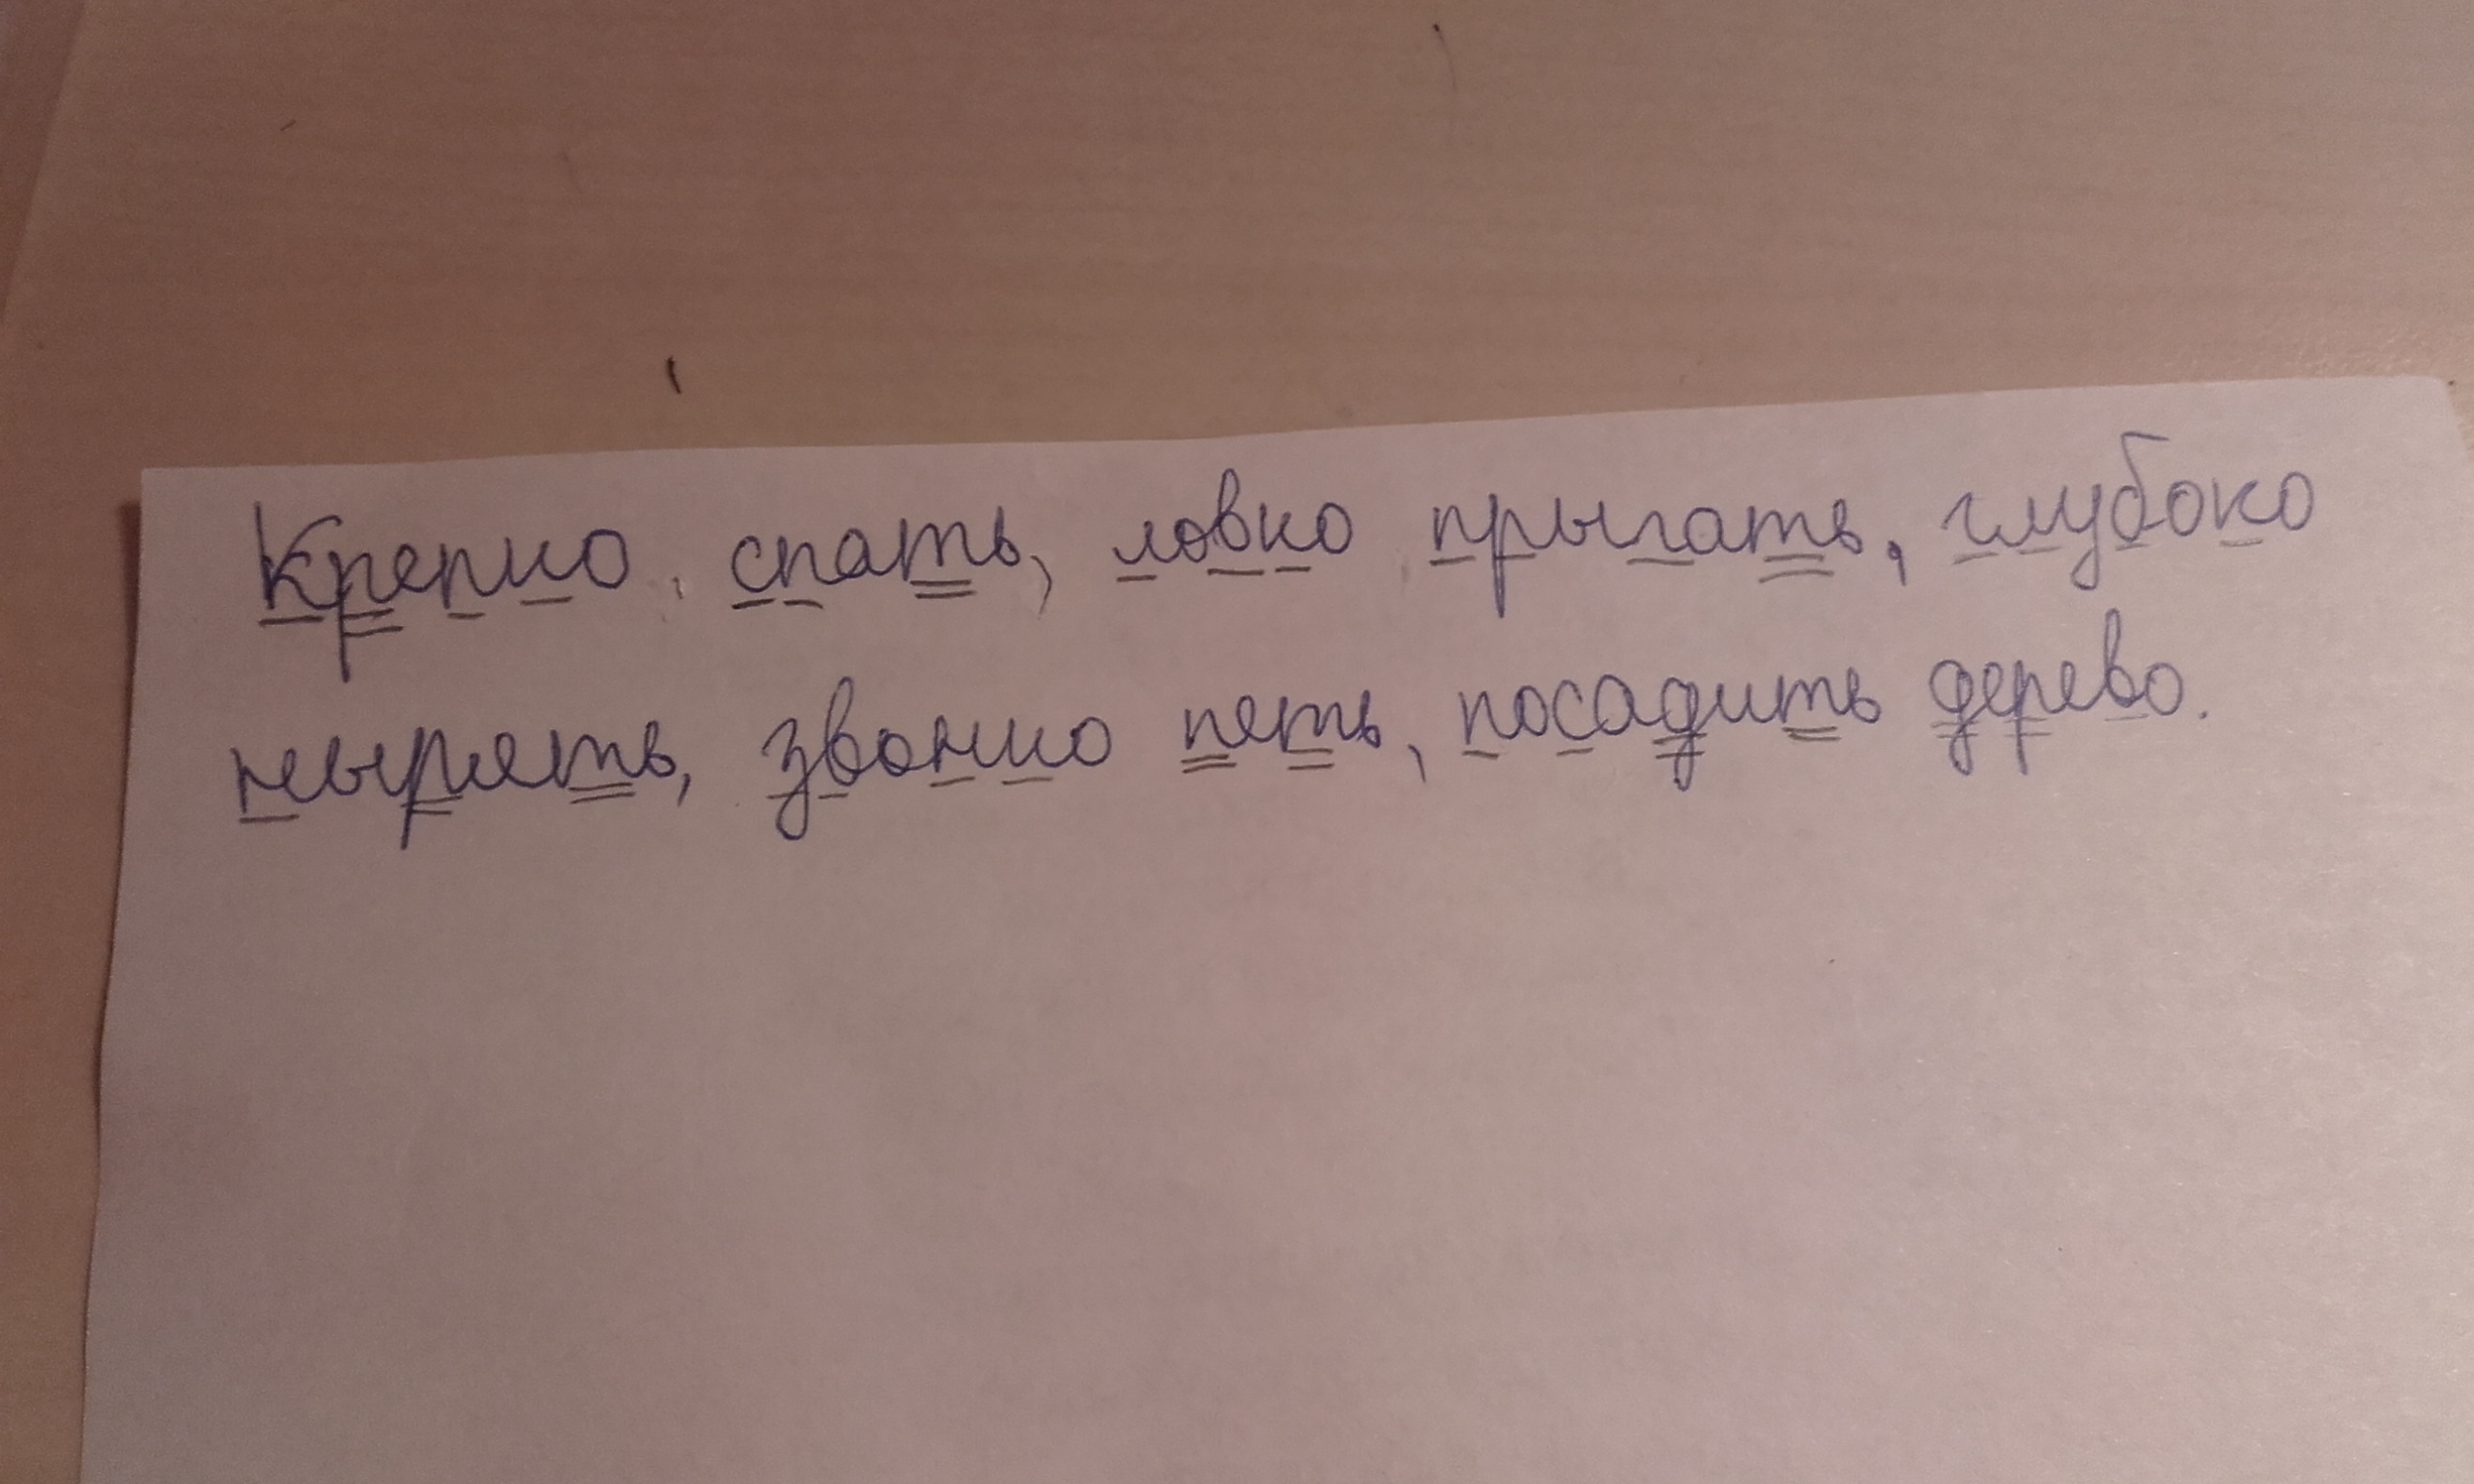 Крепко спать, ловко прыгать, глубоко
нырять, звонко петь, посадить дерево.